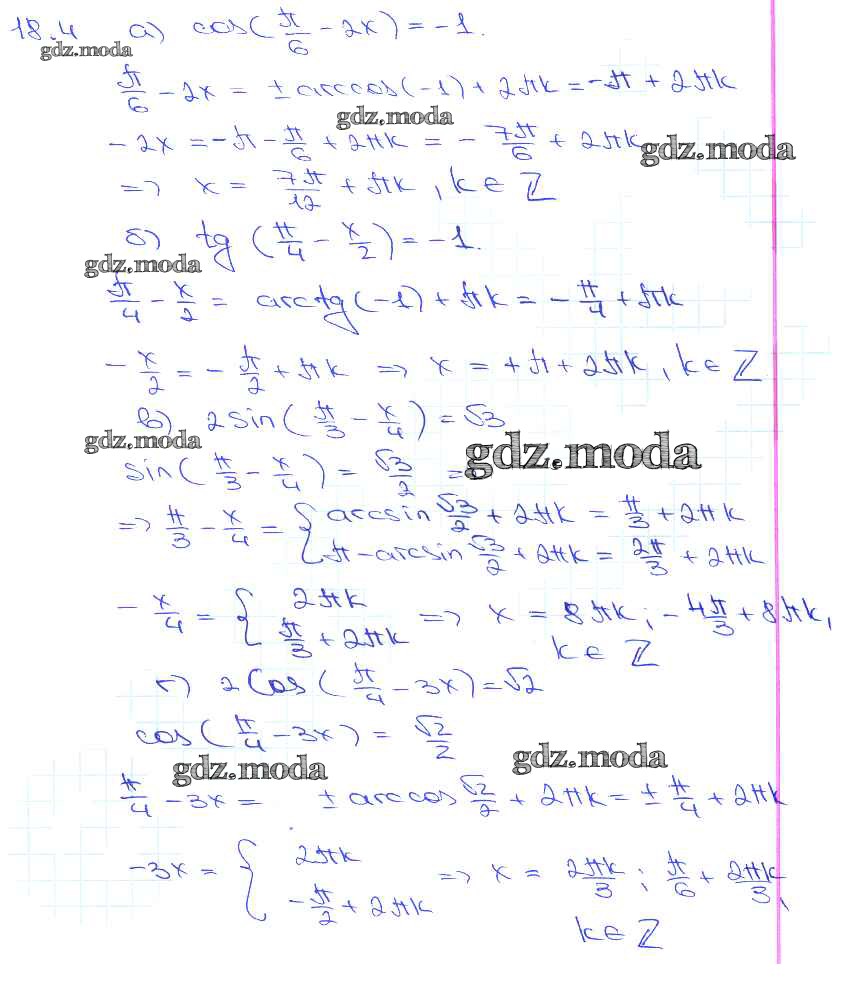 18.4 а) cos(π/6 - 2x) = -1.
gdz.moda
π/6 - 2x = ± arccos(-1) + 2πk = -π + 2πk
gdz.moda
-2x = -π - π/6 + 2πk = -7π/6 + 2πk
gdz.moda
=> x = 7π/12 + πk, k ∈ ℤ
б) tg(π/4 - x/2) = -1.
gdz.moda
π/4 - x/2 = arctg(-1) + πk = -π/4 + πk
-x/2 = -π/2 + πk => x = +π + 2πk, k ∈ ℤ
в) 2sin(π/3 - x/4) = √3
gdz.moda
gdz.moda
sin(π/3 - x/4) = √3/2 =
=> π/3 - x/4 = { arcsin √3/2 + 2πk = π/3 + 2πk
π - arcsin √3/2 + 2πk = 2π/3 + 2πk
-x/4 = { 2πk
π/3 + 2πk => x = 8πk; -4π/3 + 8πk,
k ∈ ℤ
г) 2cos(π/4 - 3x) = √2
cos(π/4 - 3x) = √2/2
gdz.moda
gdz.moda
π/4 - 3x = ± arccos √2/2 + 2πk = ± π/4 + 2πk
-3x = { 2πk
-π/2 + 2πk => x = 2πk/3; π/6 + 2πk/3,
k ∈ ℤ